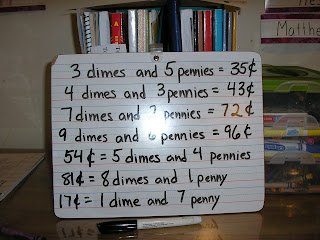 3 dimes and 5 pennies = 35¢
4 dimes and 3 pennies = 43¢
7 dimes and 2 pennies = 72¢
9 dimes and 6 pennies = 96¢
54¢ = 5 dimes and 4 pennies
81¢ = 8 dimes and 1 penny
17¢ = 1 dime and 7 penny